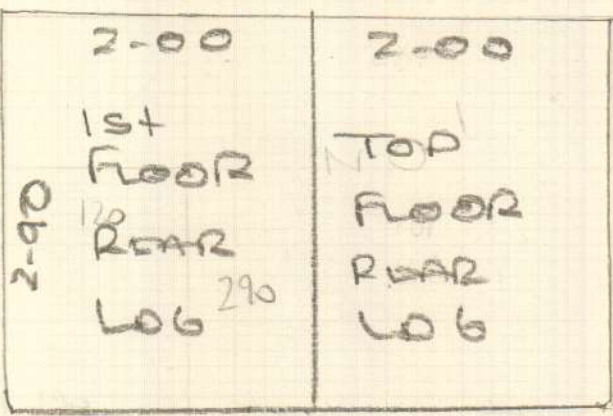 2-00
1st
FLOOR
REAR
LOG
290
2-90
2-00
TOP
FLOOR
REAR
LOG